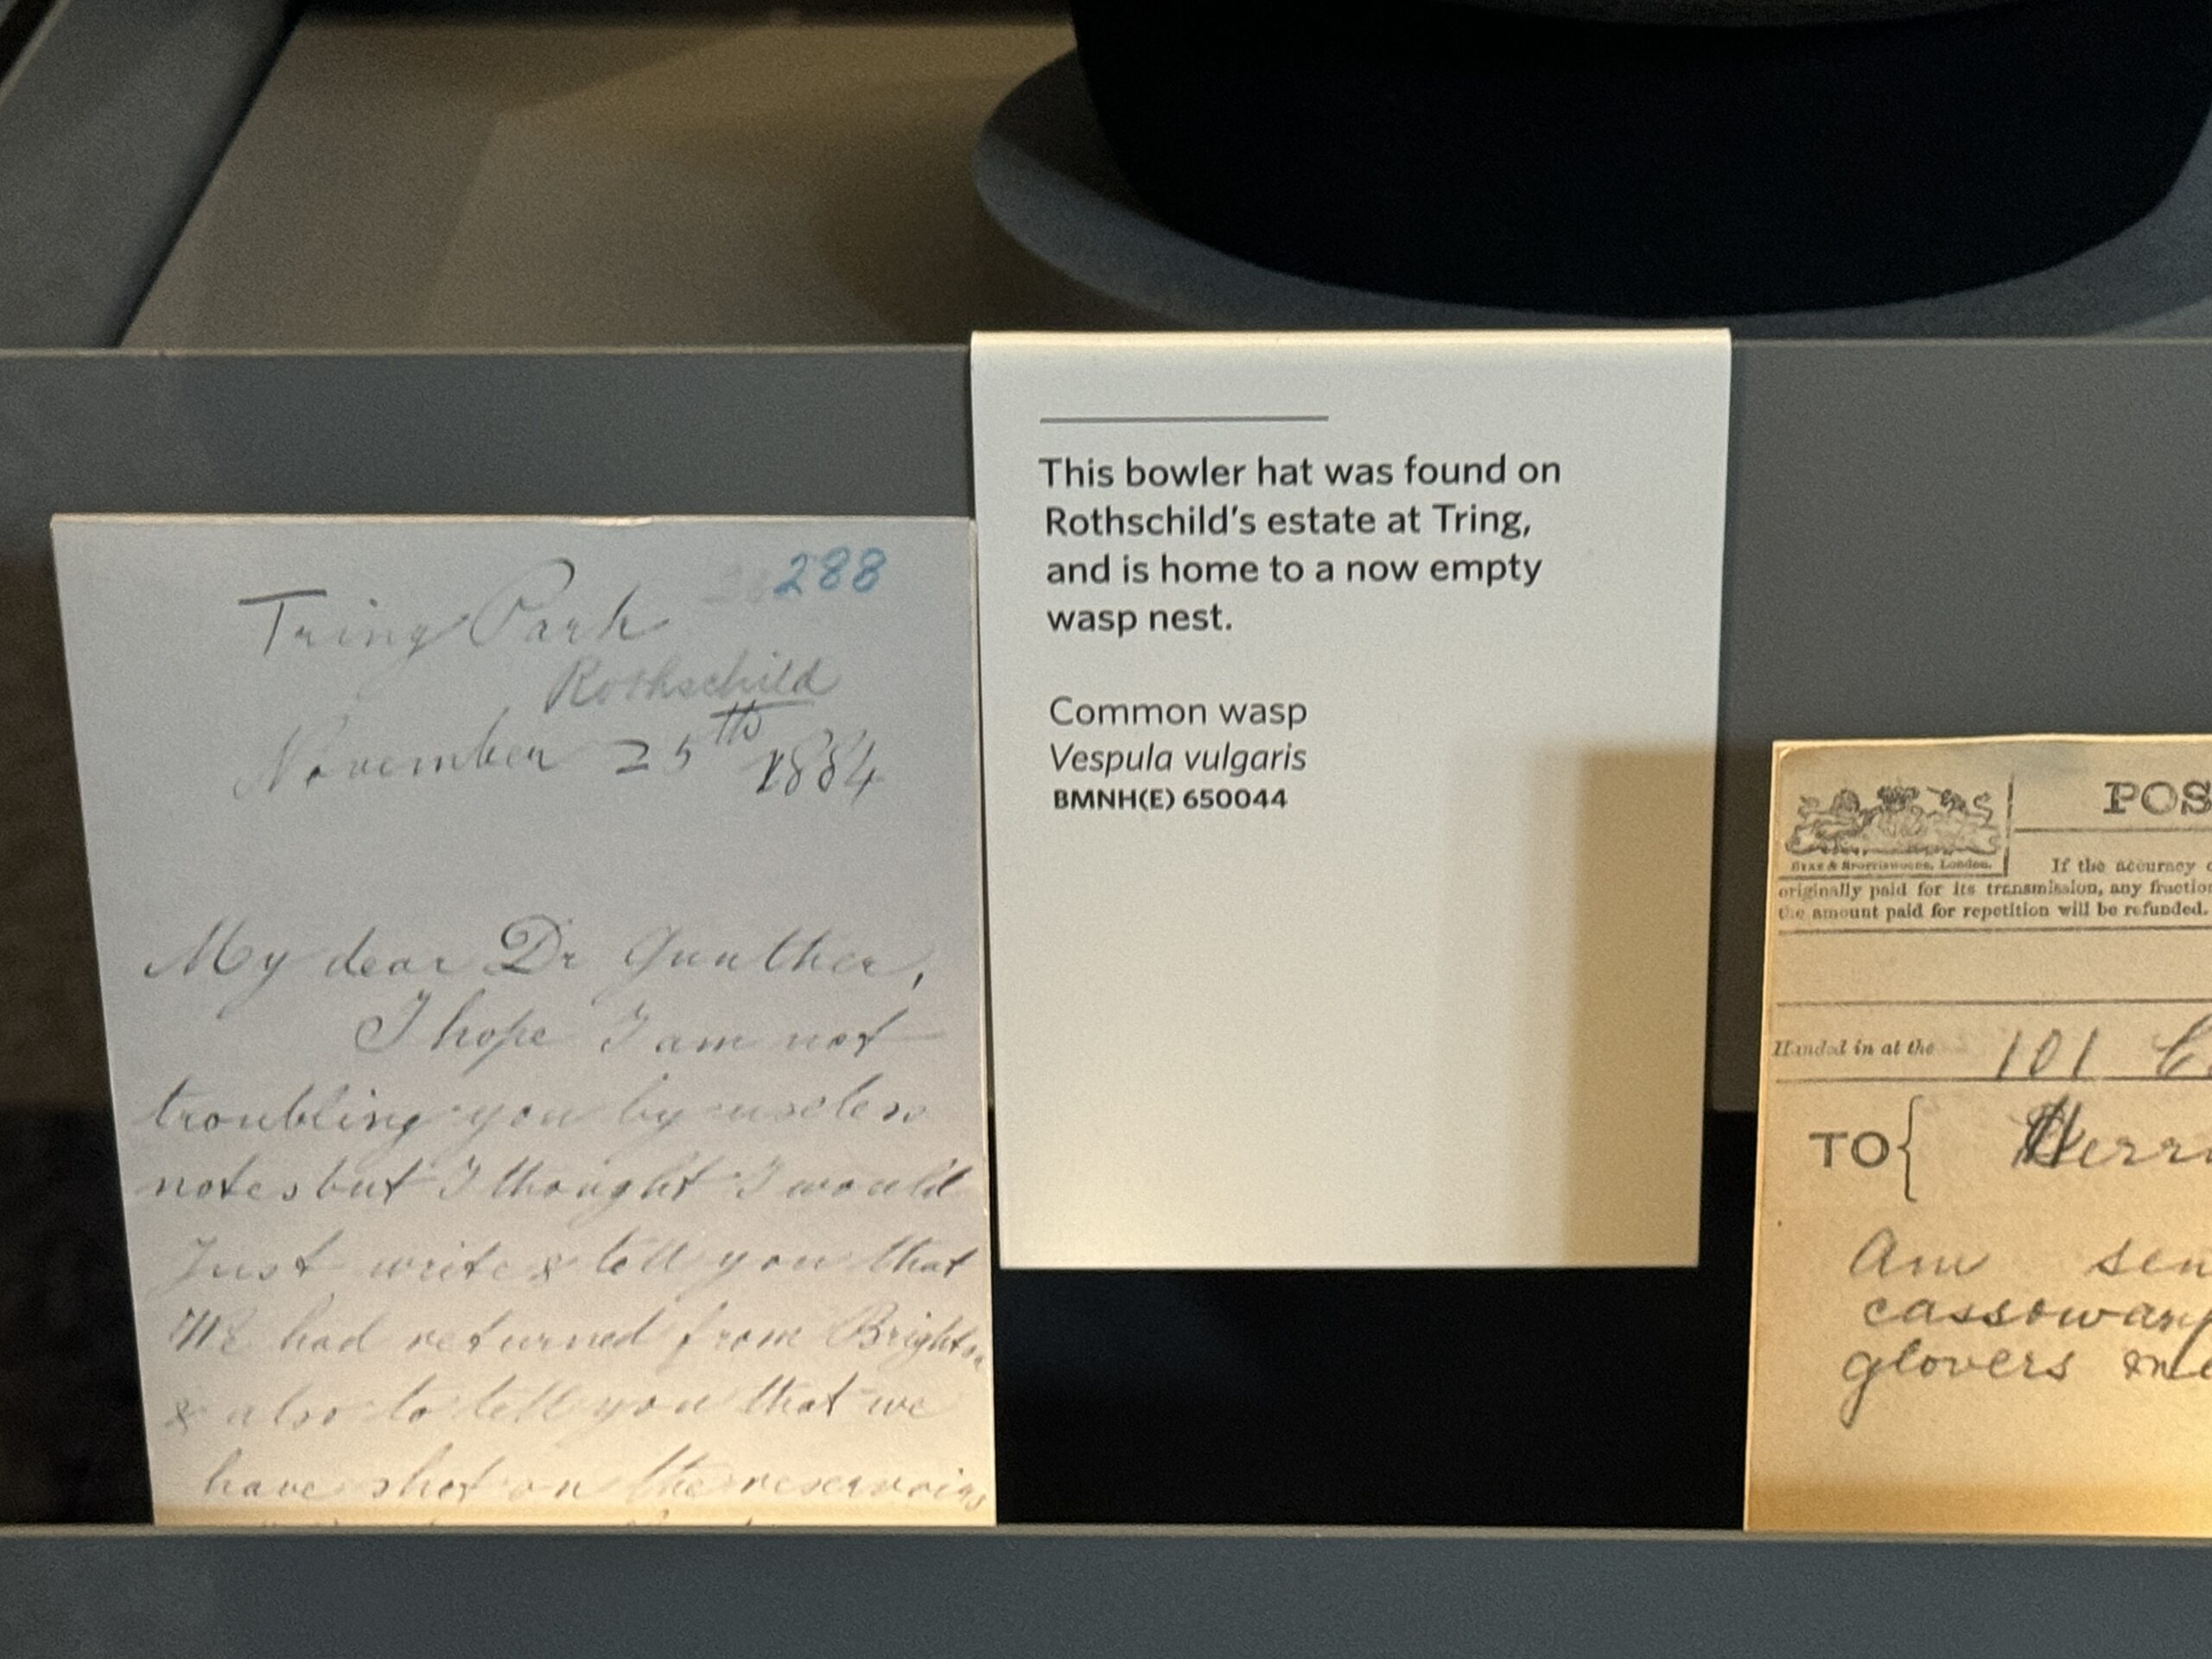 288
Tring Park
Rothschild
November 25th 1884
My dear Dr Gunther,
I hope I am not
troubling you by useless
notes but I thought I would
Just write & tell you that
We had returned from Brighton
& also to tell you that we
have shot on the reservoirs
This bowler hat was found on
Rothschild's estate at Tring,
and is home to a now empty
wasp nest.
Common wasp
Vespula vulgaris
BMNH(E) 650044
POS
Eyre & Spottiswoode, London.
If the accuracy o
originally paid for its transmission, any fraction
the amount paid for repetition will be refunded.
Handed in at the 101
TO
Am sen
cassowary
glovers